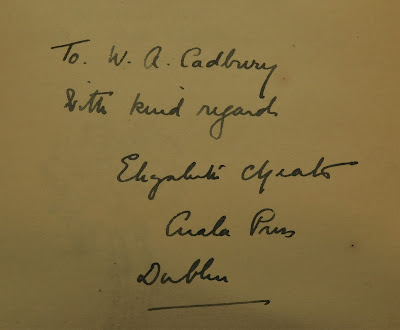 To. W. A. Cadbury
With kind regards
Elizabeth C Yeats
Cuala Press
Dublin